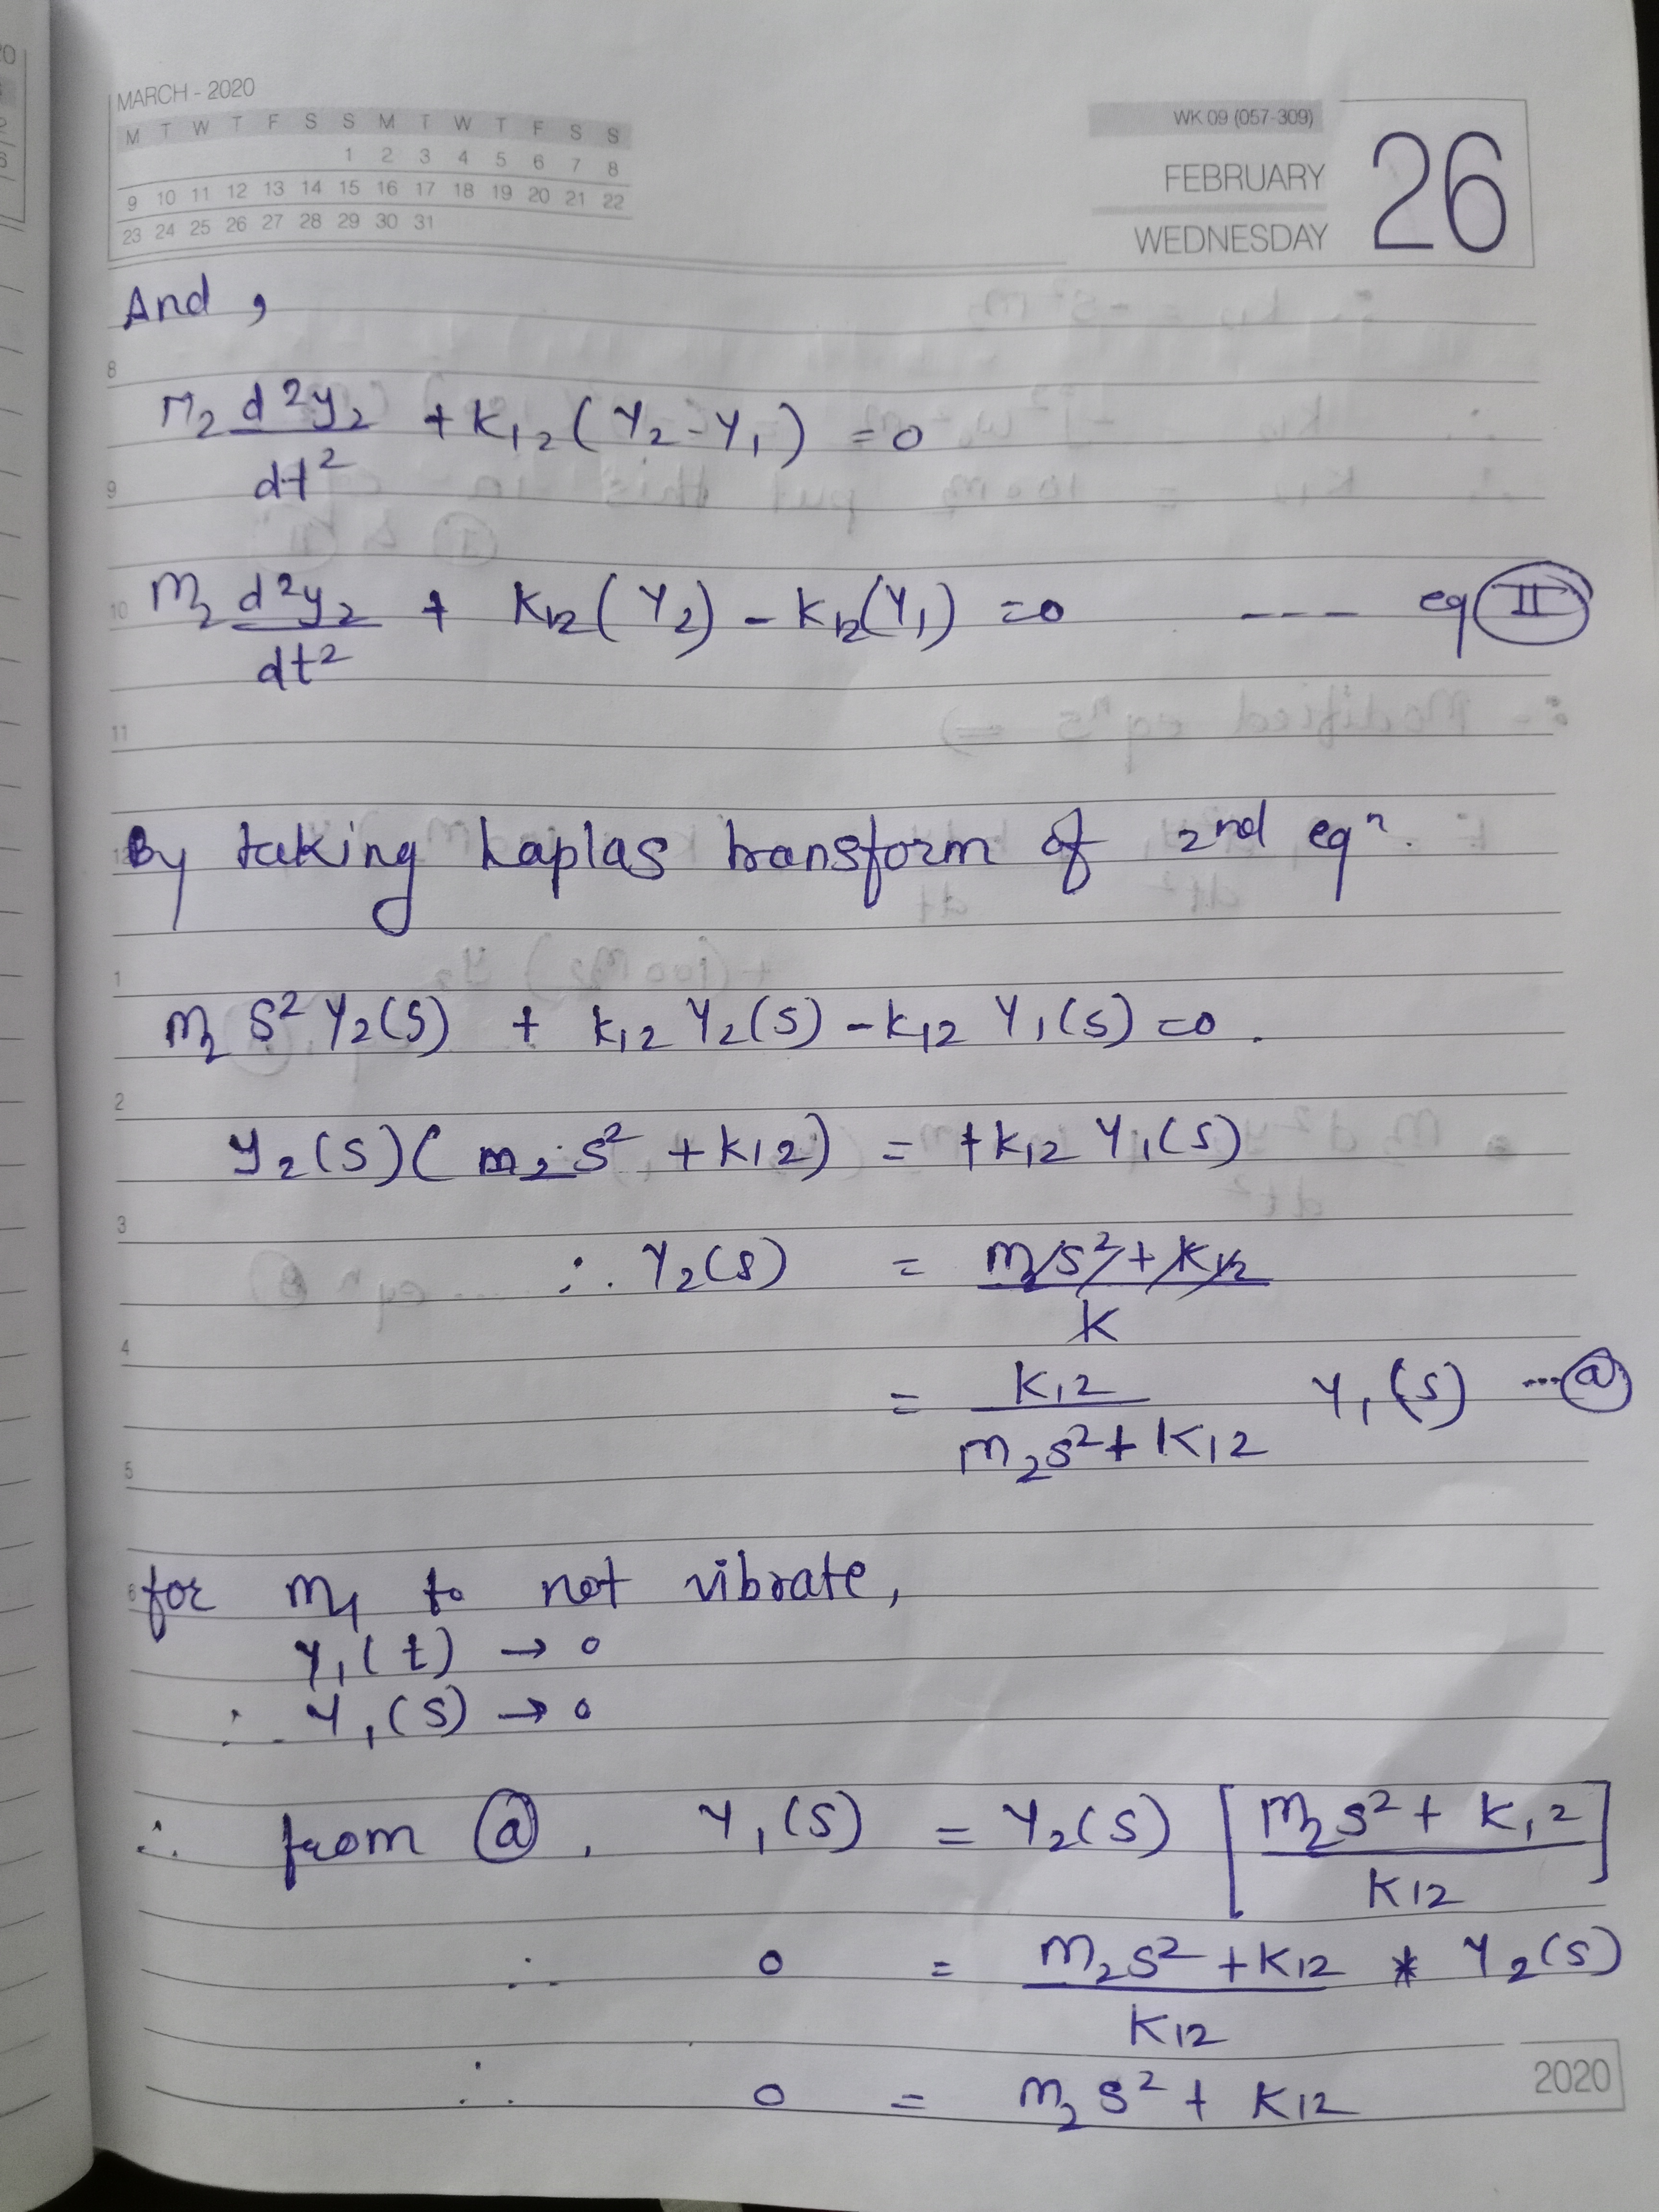 MARCH - 2020
M T W T F S S M T W T F S S
1 2 3 4 5 6 7 8
9 10 11 12 13 14 15 16 17 18 19 20 21 22
23 24 25 26 27 28 29 30 31
WK 09 (057-309)
FEBRUARY
WEDNESDAY
26
And ,
8
M2 d²y2/dt² + K12 (Y2 - Y1) = 0
9
10
m2 d²y2/dt² + K12 (Y2) - K12 (Y1) = 0 --- eq II
11
12
By taking Laplas transform of 2nd eqⁿ.
1
m2 S² Y2(S) + k12 Y2(S) - k12 Y1(S) = 0 .
2
Y2(S) ( m2 s² + k12) = + k12 Y1(S)
3
∴ Y2(s) = m2s² + k12 / k
4
= K12 / m2s² + K12 Y1(S) ... a
5
6
for m1 to not vibrate,
Y1(t) → 0
∴ Y1(S) → 0
∴ from a , Y1(S) = Y2(S) [ m2s² + K12 / K12 ]
∴ 0 = m2s² + K12 / K12 * Y2(S)
∴ 0 = m2 s² + K12
2020